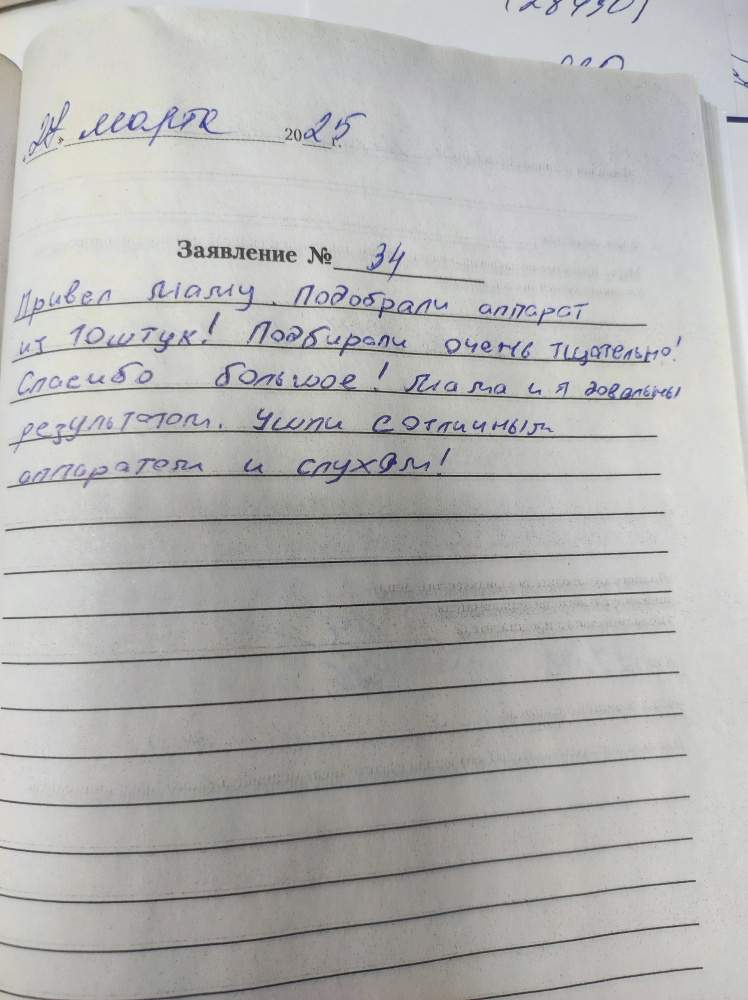 (28430)
« » марта 2025 г.
Заявление № 34
Привел маму. Подобрали аппарат
из 10 штук! Подбирали очень тщательно!
Спасибо большое! Мама и я довальны
результатом. Ушли с отличным
аппаратом и слухом!